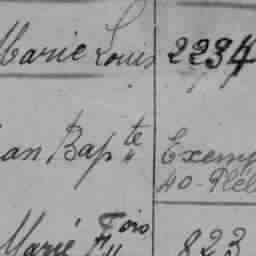 Marie Louis 2234
an Bapte Exemp
40-Plél
Marie Fois 823